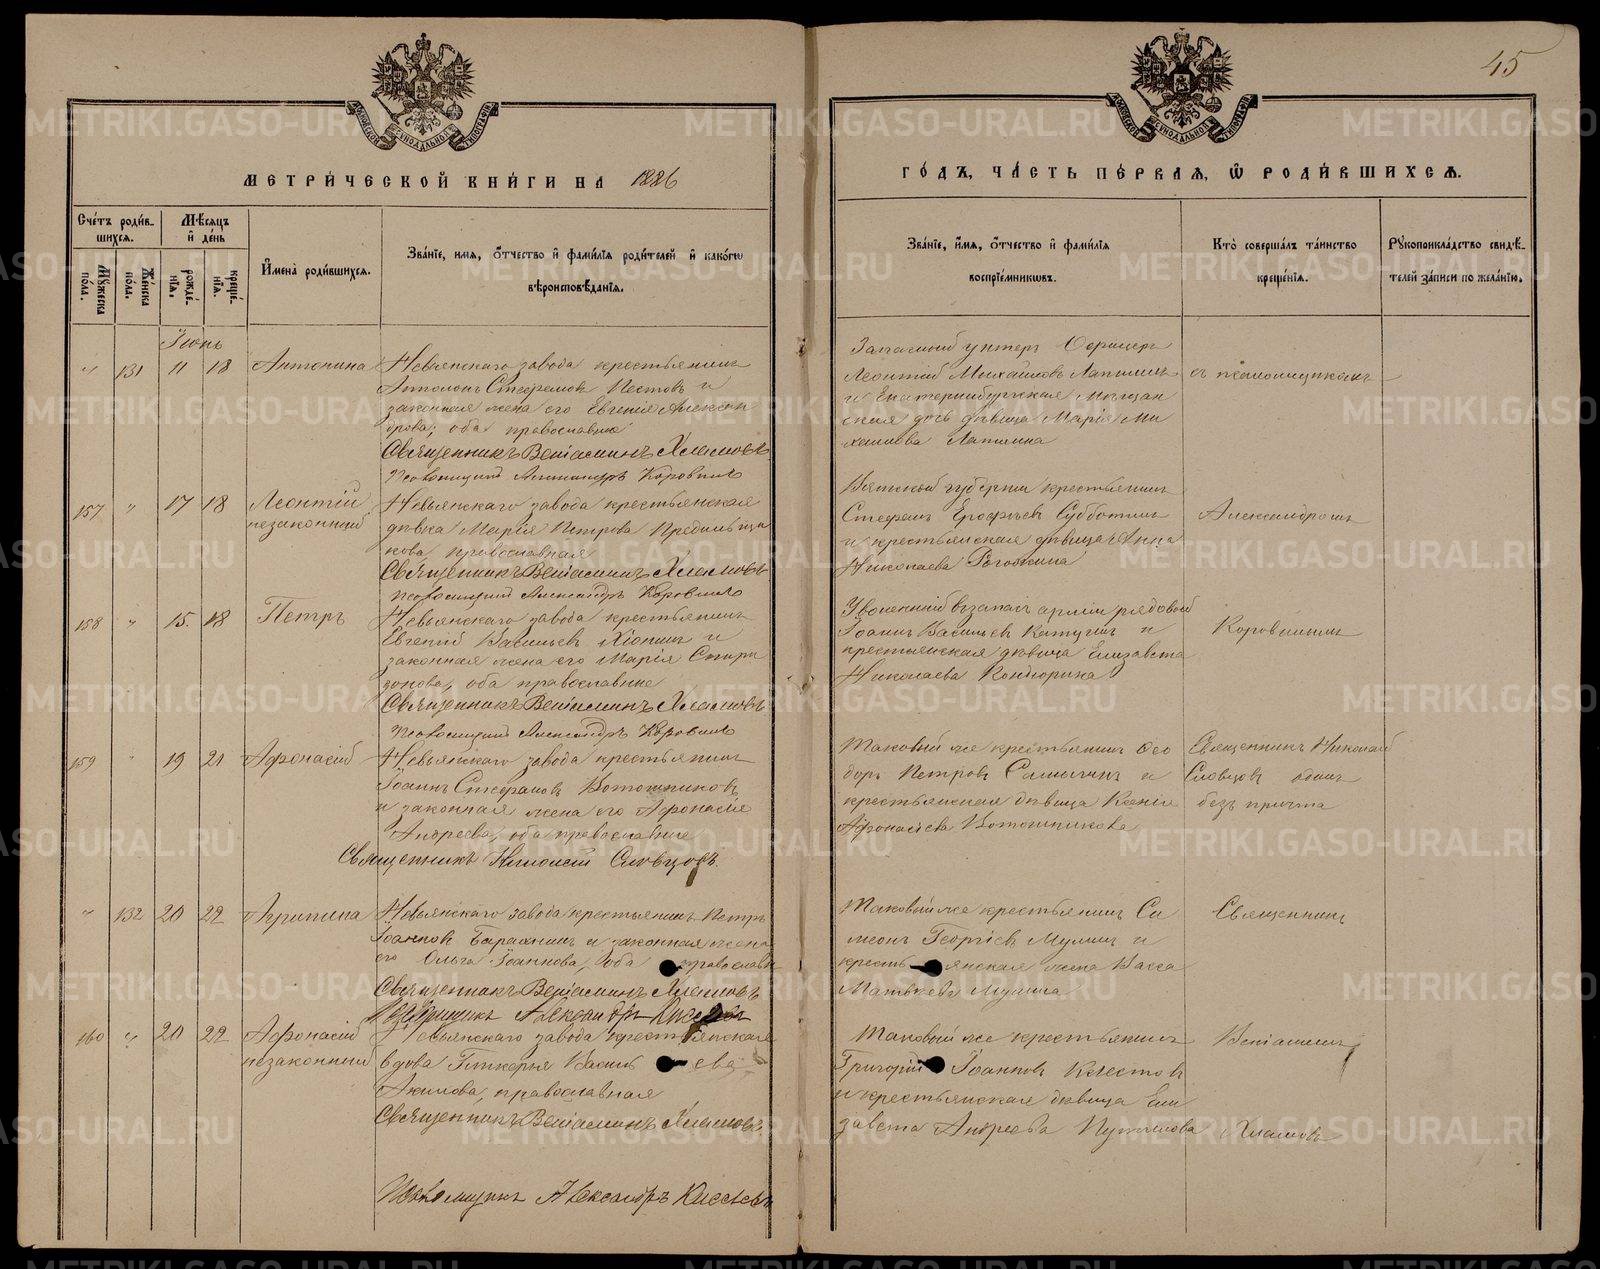 45
МЕТРИ́ЧЕСКОЙ КНИ́ГИ НА 1886
ГО́ДЪ, ЧА́СТЬ ПЕ́РВАЯ, Ѽ РОДИ́ВШИХСЯ.
Сче́тъ роди́вшихся.
Му́жеска по́ла.
Же́нска по́ла.
Мѣ́сяцъ и҆ де́нь
рожде́нїя.
креще́нїя.
И҆мена̀ роди́вшихся.
Зва́нїе, имя, ѻ҆́тчество и҆ фами́лїя роди́телей и҆ како́гѡ
вѣроисповѣ́данїя.
Зва́нїе, и҆́мя, ѻ҆́тчество и҆ фами́лїя
воспрїе́мникѡвъ.
Кто̀ соверша́лъ та́инство
креще́нїя.
Рꙋкоприкла́дство свидѣ́-
телей за́писи по жела́нїю.
Іюнь
" 131 11 18 Антонина
Невьянскаго завода крестьянинъ
Стефановъ Пестовъ и
законная жена его Евгенія Алексан
дрова, оба православные
Священникъ Веніаминъ Хламовъ
Псаломщикъ Александръ Коровинъ
Запасный унтеръ Офицеръ
Леонтій Михайловъ Лапшинъ
и Екатеринбургская Мѣщан
ская дочь дѣвица Марія Ми
хайлова Лапшина
съ псаломщикомъ
157 " 17 18 Леонтій
незаконный
Невьянскаго завода крестьянская
дѣвка Марія Петрова
кова православная
Священникъ Веніаминъ Хламовъ
Псаломщикъ Александръ Коровинъ
Вятской губерніи крестьянинъ
Стефанъ Ерофѣевъ Субботинъ
и крестьянская дѣвица Анна
Николаева Рогожина
Александромъ
158 " 15. 18 Петръ
Невьянскаго завода крестьянинъ
Евгеній Васильевъ Хіонинъ и
законная жена его Марія Спири
донова, оба православные
Священникъ Веніаминъ Хламовъ
Псаломщикъ Александръ Коровинъ
Уволенный въ запасъ арміи рядовой
Іоаннъ Васильевъ и
крестьянская дѣвица Елизавета
Николаева Кондюрина
Коровинымъ
159 " 19 21 Афонасій
Невьянскаго завода крестьянинъ
Іоаннъ Стефановъ Вотошниковъ
и законная жена его Афонасія
Андреева, оба православные
Священникъ Николай Словцовъ.
Таковый же крестьянинъ Ѳео
доръ Петровъ и
крестьянская дѣвица Ксенія
Афонасіева Вотошникова
Священникъ Николай
Словцовъ одинъ
безъ причта
" 132 20 22 Агрипина
Невьянскаго завода крестьянинъ Петръ
Іоанновъ и законная жена
его Ольга Іоаннова, оба православн
Священникъ Веніаминъ Хламовъ
Александръ Киселевъ
Таковый же крестьянинъ Си
меонъ Георгіевъ Мулинъ и
крестьянская жена Васса
Матвѣева Мулина
Священникъ
160 " 20 22 Афонасій
незаконный
Невьянскаго завода крестьянская
вдова Гликерья Василь ева
Акилова, православная
Священникъ Веніаминъ Хламовъ
Псаломщикъ Александръ Киселевъ
Таковый же крестьянинъ
Григорій Іоанновъ
и крестьянская дѣвица Ели
завета Андреева Путилова
Веніаминъ
Хламовъ
METRIKI.GASO-URAL.RU